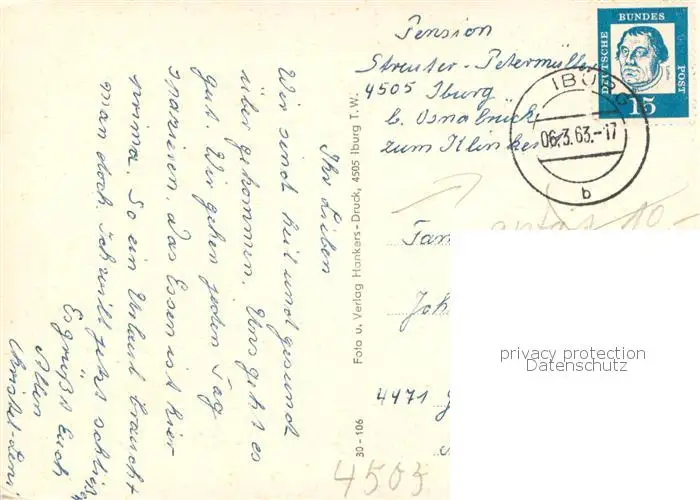 Ihr Lieben
Wir sind heil und gesund
über gekommen. Uns geht es
gut. Wir gehen jeden Tag
spazieren. Das Essen ist hier
prima. So ein Urlaub braucht
man doch. Ich will jetzt schließ
Es grüßt Euch
Allen
Foto u. Verlag Hankers-Druck, 4505 Iburg T.W.
30-106
Pension
Streuter-Petermüller
4505 Iburg
b. Osnabrück
zum Klinke
DEUTSCHE BUNDES POST
15
IBURG
06.3.63.-17
b
10.-
Fam
Joh
4471
4505
privacy protection
Datenschutz